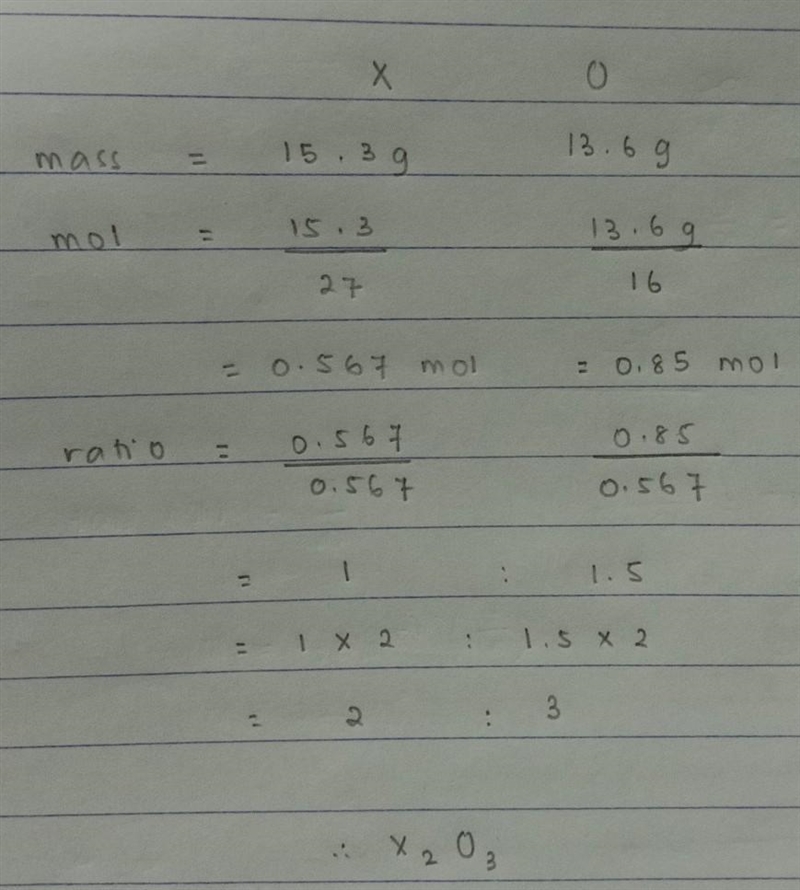 X O
mass = 15.3g 13.6 g
mol = 15.3 13.6 g
27 16
= 0.567 mol = 0.85 mol
ratio = 0.567 0.85
0.567 0.567
= 1 : 1.5
= 1 x 2 : 1.5 x 2
= 2 : 3
∴ X₂O₃